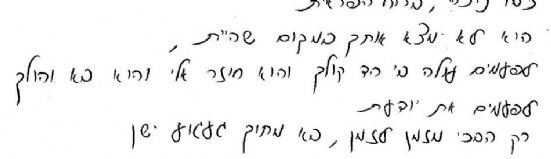 הוא לא ימצא אותך במקום שהיית,
לפעמים עולה בי הד קולך והוא חוזר אלי והוא בא והולך
לפעמים את יודעת
רק הבכי מזמן לזמן, בא מתוך געגוע ישן